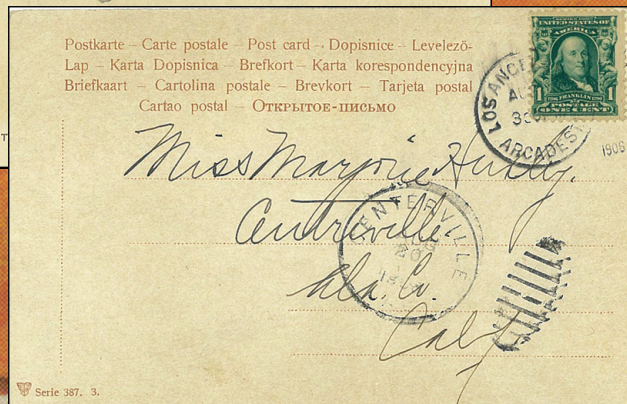 Postkarte – Carte postale – Post card – Dopisnice – Levelező-
Lap – Karta Dopisnica – Brefkort – Karta korespondencyjna
Briefkaart – Cartolina postale – Brevkort – Tarjeta postal
Cartao postal – Открытое-письмо
UNITED STATES OF
AMERICA
1 FRANKLIN 1
POSTAGE
ONE CENT
LOS ANGE
ARCADE ST
1906
Miss Marjorie
CENTERVILLE
Centreville
Ala. Co.
Calif
Serie 387. 3.